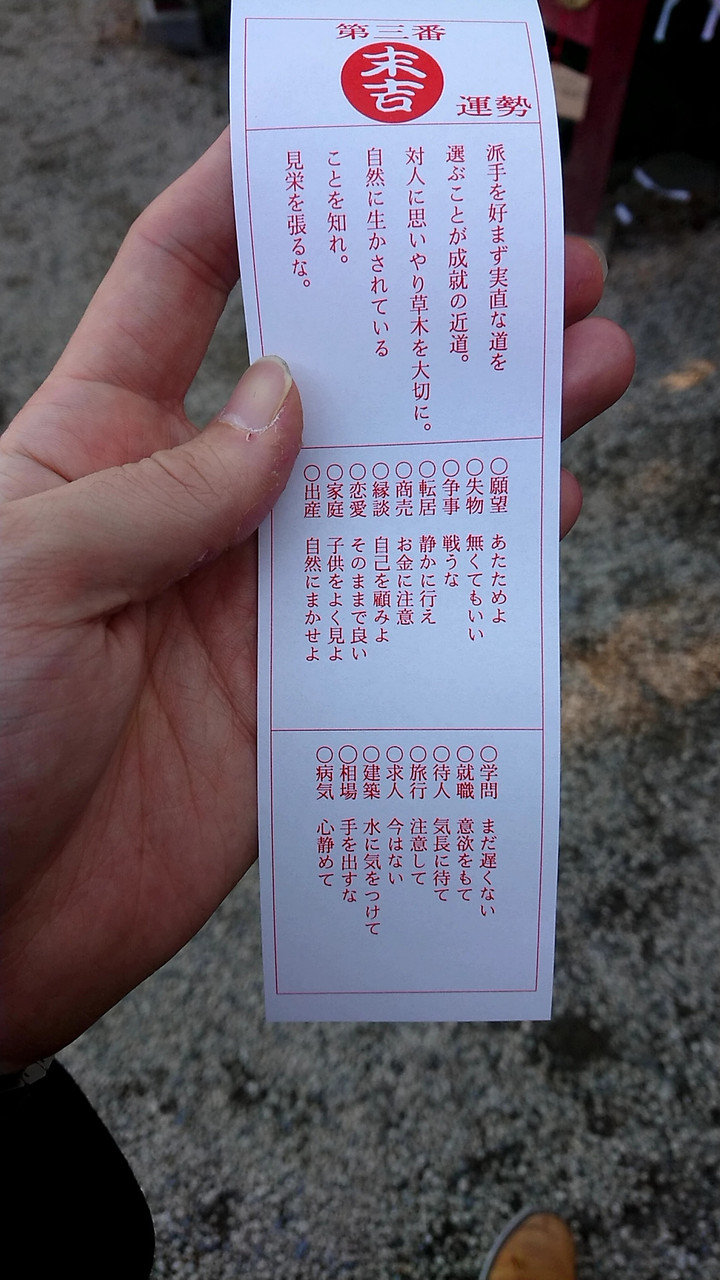 第三番
末吉
運勢
派手を好まず実直な道を
選ぶことが成就の近道。
対人に思いやり草木を大切に。
自然に生かされている
ことを知れ。
見栄を張るな。
○願望 あたためよ
○失物 無くてもいい
○争事 戦うな
○転居 静かに行え
○商売 お金に注意
○縁談 自己を顧みよ
○恋愛 そのままで良い
○家庭 子供をよく見よ
○出産 自然にまかせよ
○学問 まだ遅くない
○就職 意欲をもて
○待人 気長に待て
○旅行 注意して
○求人 今はない
○建築 水に気をつけて
○相場 手を出すな
○病気 心静めて